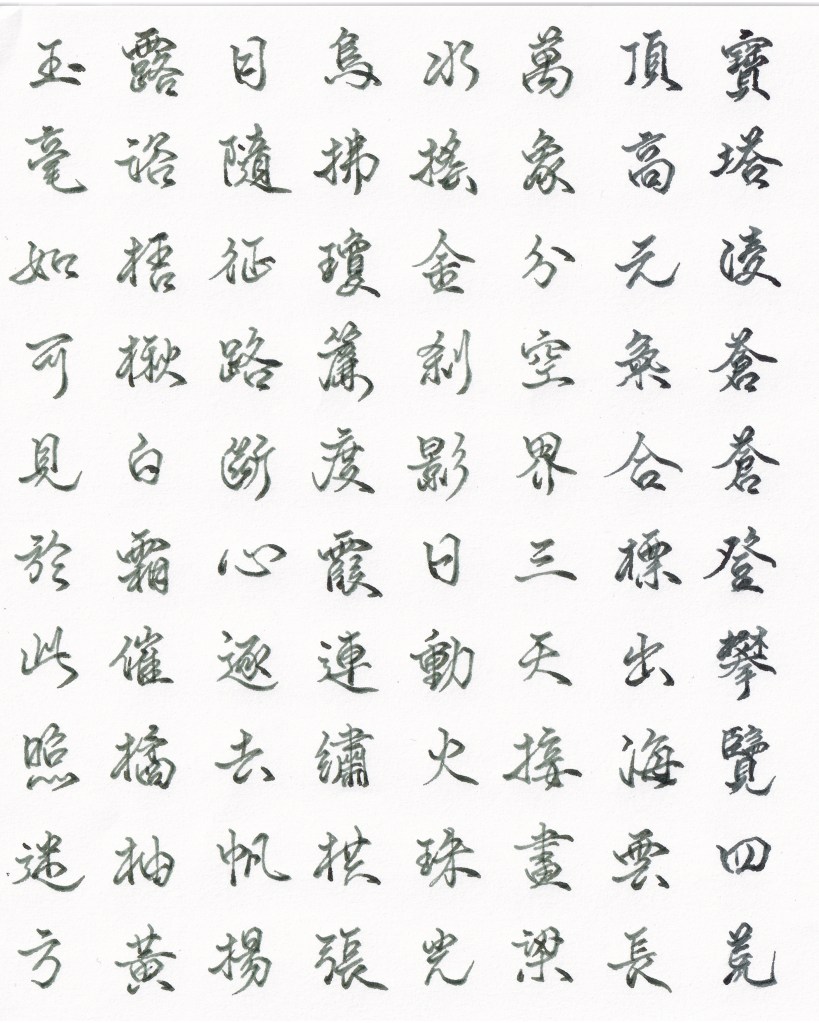 寶塔淩蒼蒼登攀覽四荒
頂高元氣合標出海雲長
萬象分空界三天接畫梁
水搖金剎影日動火珠光
鳥拂瓊簾度霞連繡栱張
日隨征路斷心逐去帆揚
露浴梧楸白霜催橘柚黃
玉毫如可見於此照迷方